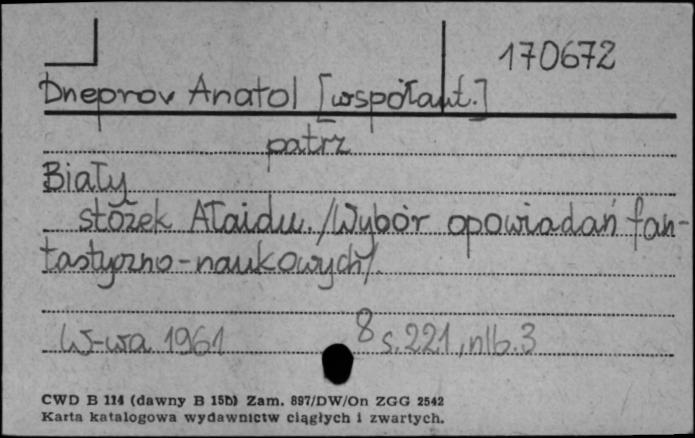 170672
Dneprov Anatol [współaut.]
patrz
Biały
stożek Ałaidu. /Wybór opowiadań fan-
tastyczno-naukowych/.
W-wa 1961 8 s. 221, nlb. 3
CWD B 114 (dawny B 15b) Zam. 897/DW/On ZGG 2542
Karta katalogowa wydawnictw ciągłych i zwartych.